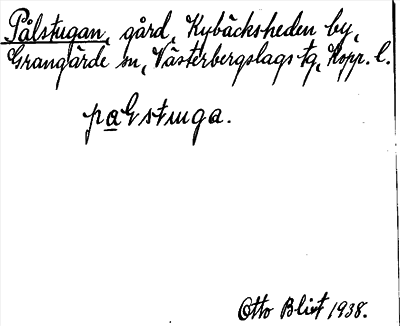 Pålstugan, gård, Kybäcksheden by,
Grangärde sn, Västerbergslags tg, Kopp. l.
Otto Blixt 1938.